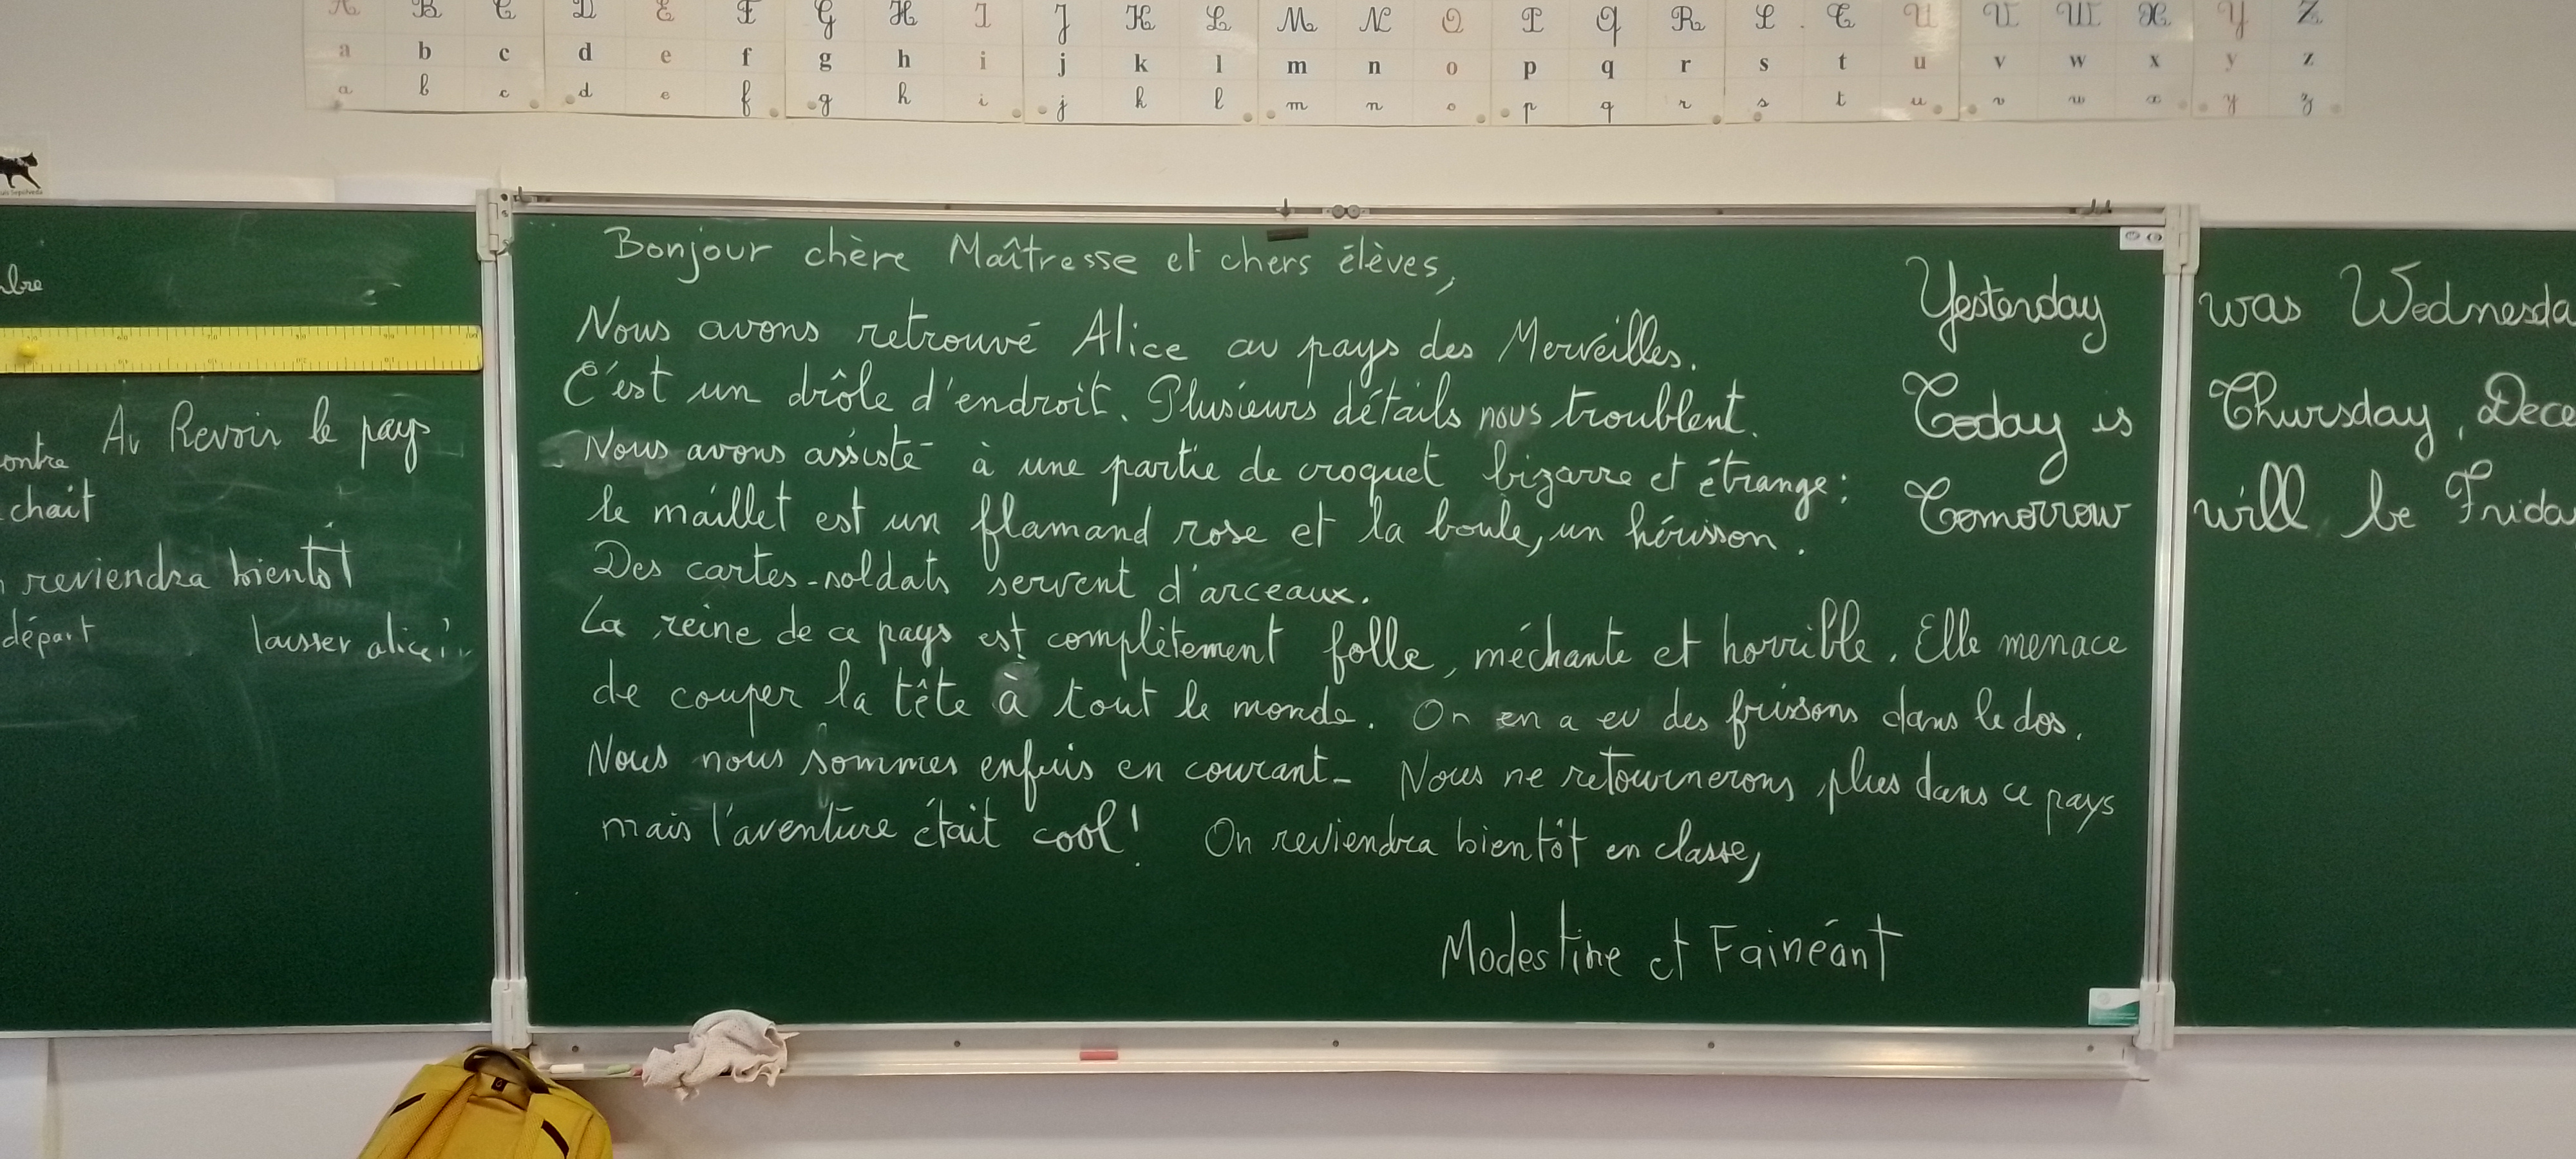 A B C D E F G H I J K L M N O P Q R S T U V W X Y Z
a b c d e f g h i j k l m n o p q r s t u v w x y z
a b c d e f g h i j k l m n o p q r s t u v w x y z
bre
Au Revoir le pays
ontre
chait
reviendra bientôt
départ laisser alice
Bonjour chère Maîtresse et chers élèves,
Nous avons retrouvé Alice au pays des Merveilles.
C'est un drôle d'endroit. Plusieurs détails nous troublent.
Nous avons assisté à une partie de croquet bizarre et étrange :
le maillet est un flamand rose et la boule, un hérisson.
Des cartes-soldats servent d'arceaux.
La reine de ce pays est complètement folle, méchante et horrible. Elle menace
de couper la tête à tout le monde. On en a eu des frissons dans le dos.
Nous nous sommes enfuis en courant. Nous ne retournerons plus dans ce pays
mais l'aventure était cool! On reviendra bientôt en classe,
Modestine et Fainéant
Yesterday was Wednesda
Today is Thursday, Dece
Tomorrow will be Frida